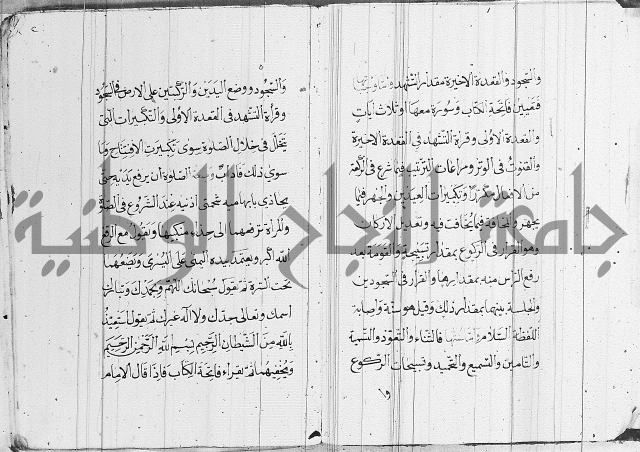 والسجود والقعدة الاخيرة مقدار التشهد
فتعيين فاتحة الكتاب وسورة معها او ثلاث ايات
والقعدة الاولى وقراة التشهد في القعدة الاخيرة
والقنوت في الوتر ومراعات الترتيب فيما شرع في الركعة
من الافعال مكررا وتكبيرات العيدين والجهر فيما
يجهر والمخافتة فيما يخافت فيه وتعديل الاركان
وهو القرار في الركوع بمقدار تسبيحة والقومة بعد
رفع الراس منه بمقدارها والقرار في السجودين
والجلسة بينهما بمقدار ذلك وقيل هو سنة واصابة
اللفظة السلام فالثناء والتعوذ والتسمية
والتامين والتسميع والتحميد وتسبيحات الركوع
وا
والسجود ووضع اليدين والركبتين على الارض في السجود
وقراة التشهد في القعدة الاولى والتكبيرات التي
يتخلل في خلال الصلوة سوى تكبيرة الافتتاح وما
سوى ذلك فاداب الصلوة ان يرفع يديه حتى
يحاذي بابهاميه شحمتي اذنيه عند الشروع في الصلوة
والمراة ترفعهما الى حذاء منكبيها ويقول مع الرفع
الله اكبر ويعتمد بيده اليمنى على اليسرى ويضعهما
تحت السرة ثم يقول سبحانك اللهم وبحمدك وتبارك
اسمك وتعالى جدك ولا اله غيرك ثم يقول استعيذ
بالله من الشيطان الرجيم بسم الله الرحمن الرحيم
ويخفيهما ثم يقراء فاتحة الكتاب فاذا قال الامام
جامعة نجاح الوطنية